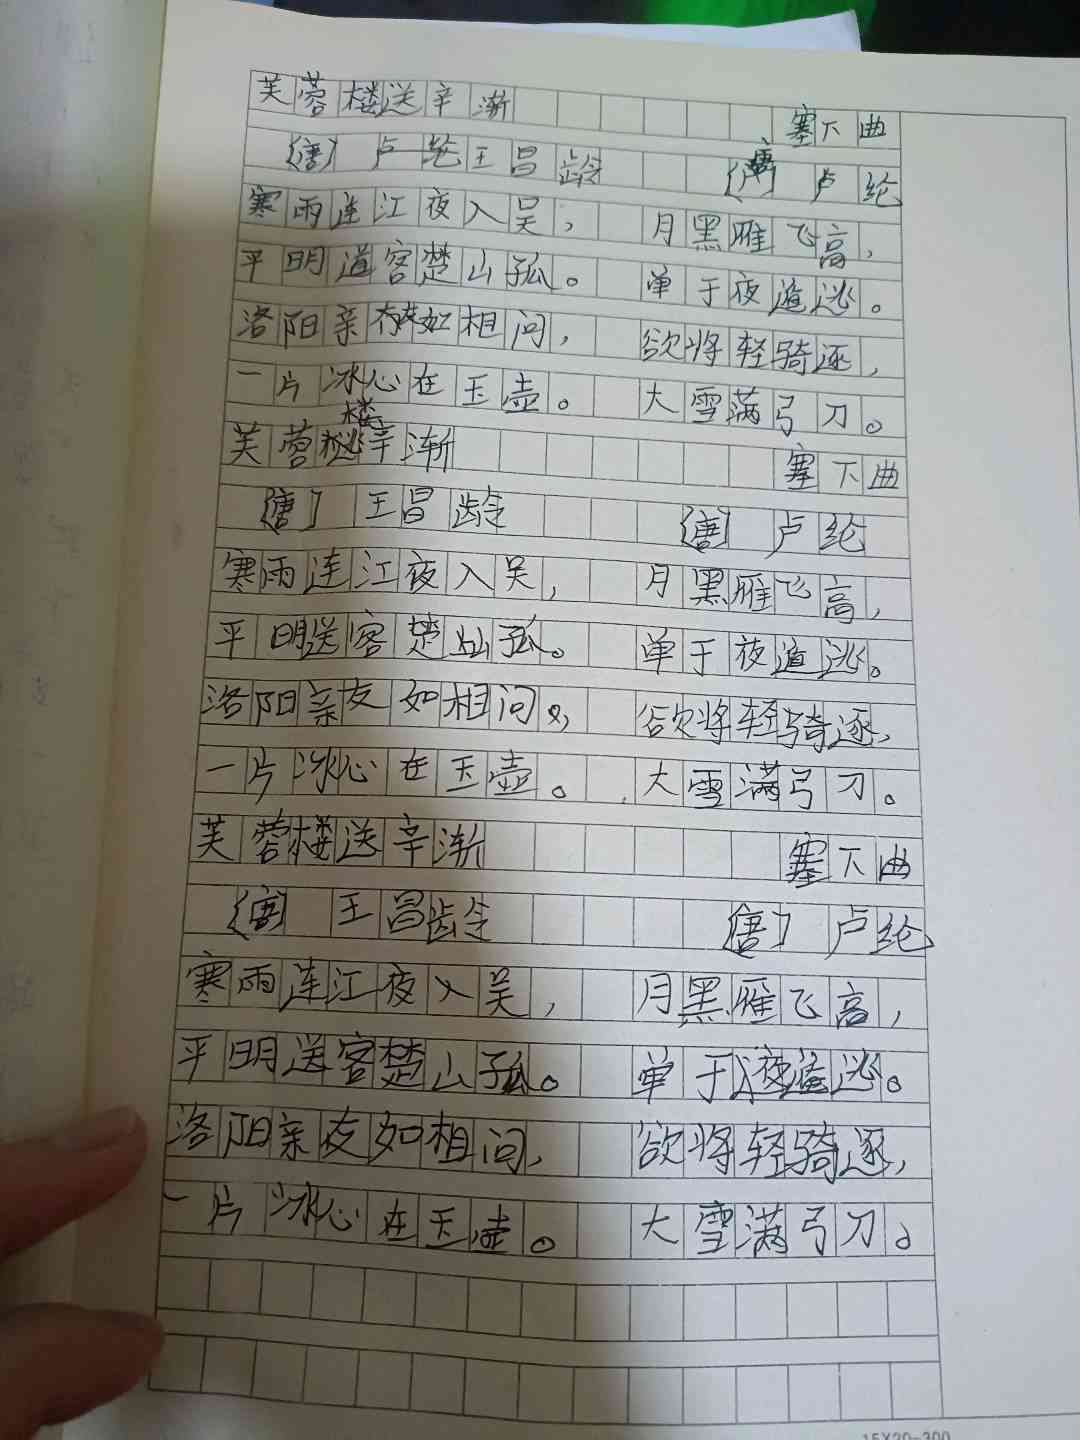 芙蓉楼送辛渐 塞下曲
〔唐〕卢纶王昌龄 〔唐〕卢纶
寒雨连江夜入吴， 月黑雁飞高，
平明送客楚山孤。 单于夜遁逃。
洛阳亲友如相问， 欲将轻骑逐，
一片冰心在玉壶。 大雪满弓刀。
芙蓉楼送辛渐 塞下曲
〔唐〕王昌龄 〔唐〕卢纶
寒雨连江夜入吴， 月黑雁飞高，
平明送客楚山孤。 单于夜遁逃。
洛阳亲友如相问， 欲将轻骑逐，
一片冰心在玉壶。 大雪满弓刀。
芙蓉楼送辛渐 塞下曲
〔唐〕王昌龄 〔唐〕卢纶
寒雨连江夜入吴， 月黑雁飞高，
平明送客楚山孤。 单于夜遁逃。
洛阳亲友如相问， 欲将轻骑逐，
一片冰心在玉壶。 大雪满弓刀。
15X20=300